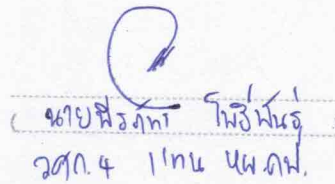 ( นายพีรภัทร โพธิ์พันธุ์ )
วศก.4 แทน หผ.คพ.